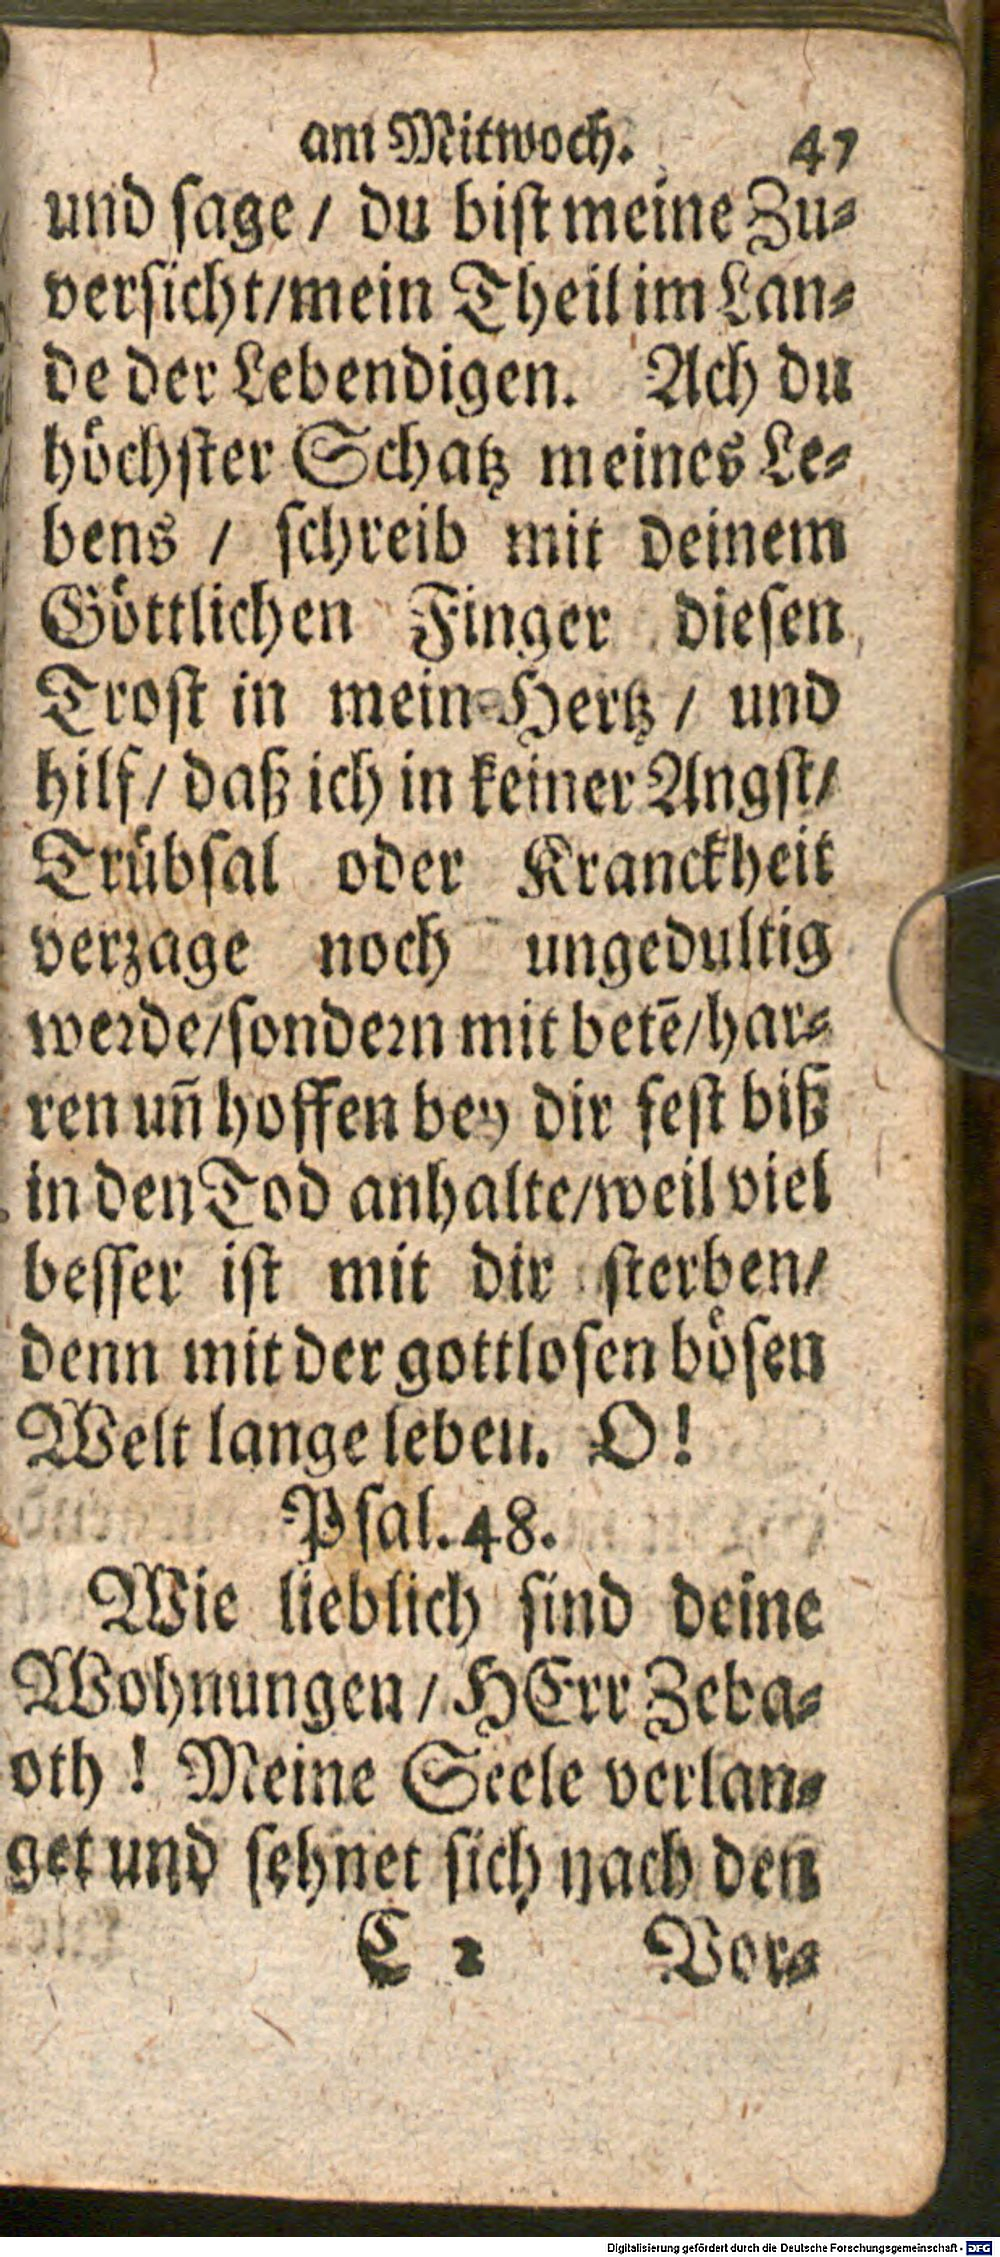 am Mittwoch. 47
und ſage / du biſt meine Zu⸗
verſicht/mein Theil im Lan⸗
de der Lebendigen. Ach du
hoͤchſter Schatz meines Le⸗
bens / ſchreib mit deinem
Goͤttlichen Finger dieſen
Troſt in mein Hertz / und
hilf/ daß ich in keiner Angſt/
Truͤbſal oder Kranckheit
verzage noch ungedultig
weꝛde/ſondeꝛn mit betē/har⸗
ren un̄ hoffen bey dir feſt biß
in den Tod anhalte/weil viel
beſſer iſt mit dir ſterben/
denn mit der gottloſen boͤſen
Welt lange leben. O!
Pſal. 48.
Wie lieblich ſind deine
Wohnungen / HErr Zeba⸗
oth ! Meine Seele verlan⸗
get und ſehnet ſich nach den
C 2 Vor⸗
Digitalisierung gefördert durch die Deutsche Forschungsgemeinschaft - DFG